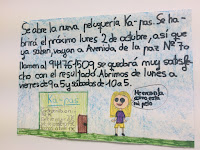 Se abre la nueva peluquería Ka-pas. Se ha-
brirá el próximo lunes 2 de octubre, así que
ya saben, vayan a Avenida de la paz Nº 70
llamen al 914761509, se quedará muy satisfe
cho con el resultado. Abrimos de lunes a
viernes de 9 a 5 y sábados de 10 a 5.
Ka-pas